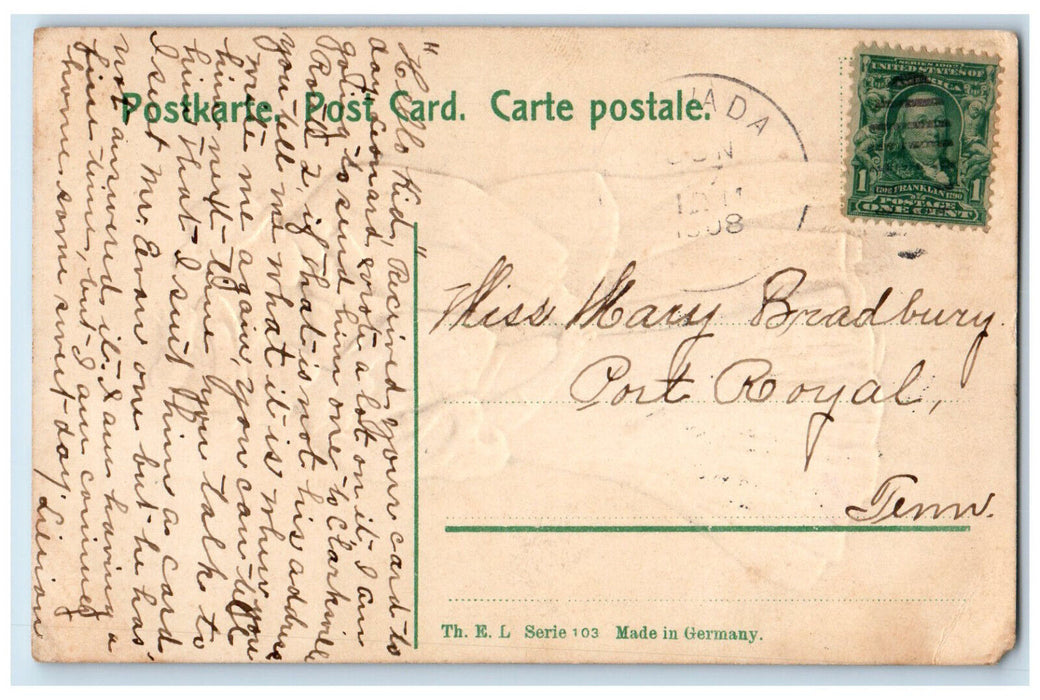 Postkarte. Post Card. Carte postale.
"Hello Kid," Received your card to-
day conard, wrote a lot on it. I am
going to send him one to Clarksville
R.r.d 2, if that is not his address
you tell me what it is when you
write me again, you can tell
him next-time you talk to
him that I sent him a card
I sent Mr. Evan one but he has
not answered it. I am having a
fine time, but I am coming
home some sweet-day. Lilian
ADA
JUN
1908
SERIES 1902
UNITED STATES OF
AMERICA
1 1706 FRANKLIN 1790 1
POSTAGE
ONE CENT
Miss Mary Bradbury.
Port Royal,
Tenn.
Th. E. L Serie 103 Made in Germany.